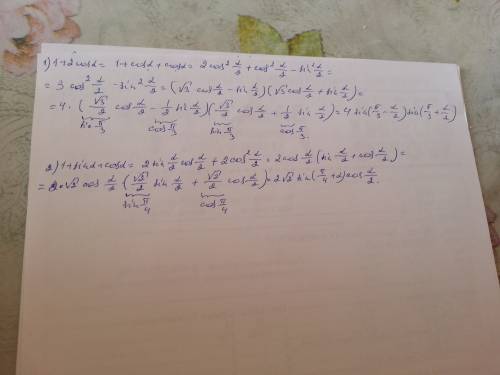 1) 1+2cosα = 1+cosα+cosα = 2cos² α/2 + cos² α/2 - sin² α/2 =
= 3 cos² α/2 - sin² α/2 = (√3 cos α/2 - sin α/2)(√3 cos α/2 + sin α/2) =
= 4 · (√3/2 cos α/2 - 1/2 sin α/2)(√3/2 cos α/2 + 1/2 sin α/2) = 4 sin(π/3 - α/2) sin(π/3 + α/2)
sin π/3 cos π/3 sin π/3 cos π/3
2) 1+sinα+cosα = 2 sin α/2 cos α/2 + 2cos² α/2 = 2cos α/2 (sin α/2 + cos α/2) =
= 2·√2 cos α/2 (√2/2 sin α/2 + √2/2 cos α/2) = 2√2 sin(π/4 + α) cos α/2.
sin π/4 cos π/4